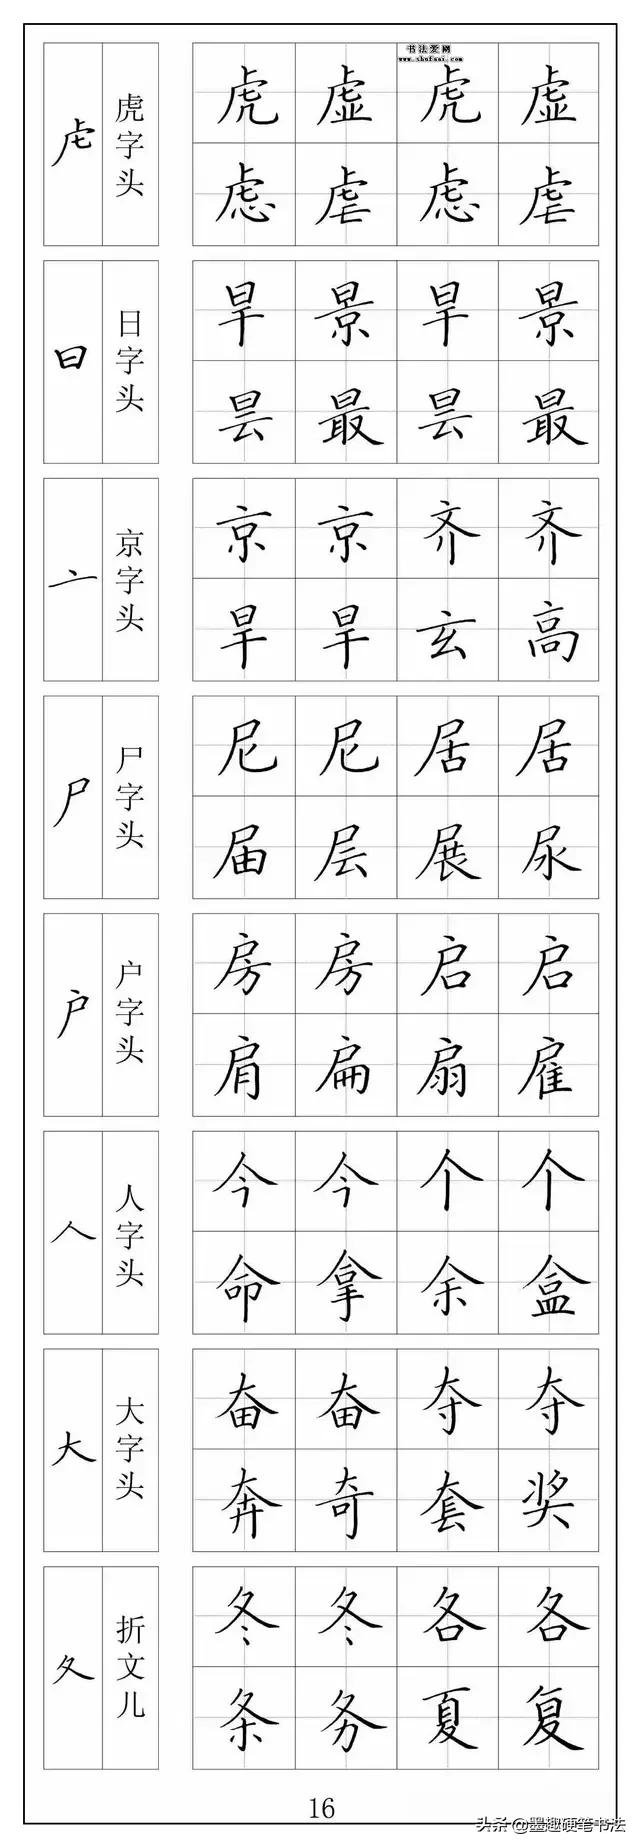 书法爱网
www.shufaai.com
虍
虎字头
虎 虚 虎 虚
虑 虐 虑 虐
日
日字头
旱 景 旱 景
昙 最 昙 最
亠
京字头
京 京 齐 齐
旱 旱 玄 高
尸
尸字头
尼 尼 居 居
届 层 展 尿
户
户字头
房 房 启 启
肩 扁 扇 雇
人
人字头
今 今 个 个
命 拿 余 盒
大
大字头
奋 奋 夺 夺
奔 奇 套 奖
夂
折文儿
冬 冬 各 各
条 务 夏 复
16
头条 @墨趣硬笔书法